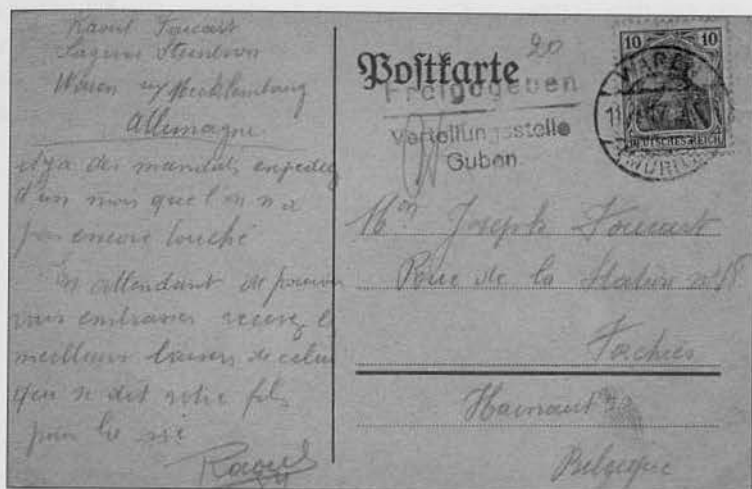 Raoul Foucart
Waren Mecklembourg
Allemagne
il y a des mandats
d'un mois que l'on n'a
pas encore touché
En attendant de pouvoir
vous embrasser recevez les
meilleurs baisers de celui
qui se dit votre fils
pour la vie
Raoul
Postkarte
20
Freigegeben
Verteilungsstelle
Guben
10 10
DEUTSCHES REICH
WAREN
(MÜRITZ)
Mon Joseph Foucart
Rue de la Station n° 18
Hainaut
Belgique